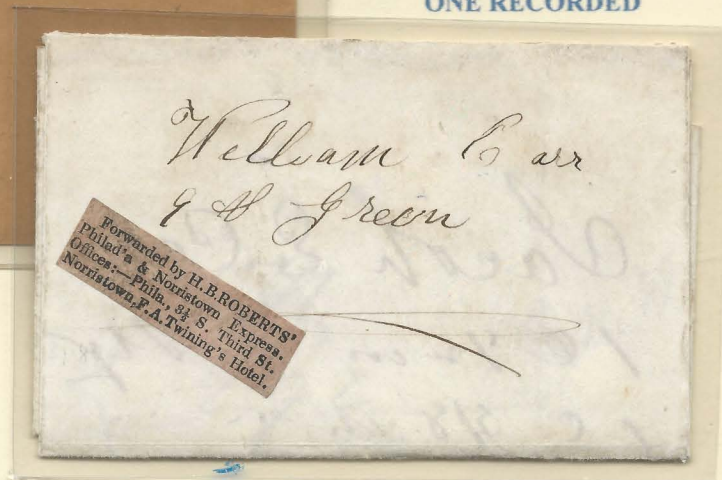 ONE RECORDED
William Carr
9th Green
Forwarded by H.B.ROBERTS'
Philad'a & Norristown Express.
Offices:—Phila., 3½ S. Third St.
Norristown, F.A.Twining's Hotel.